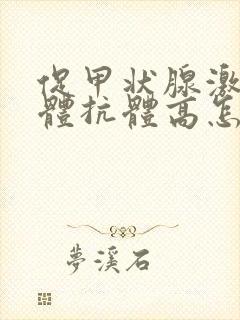 促甲狀腺激
體抗體高怎
夢溪石